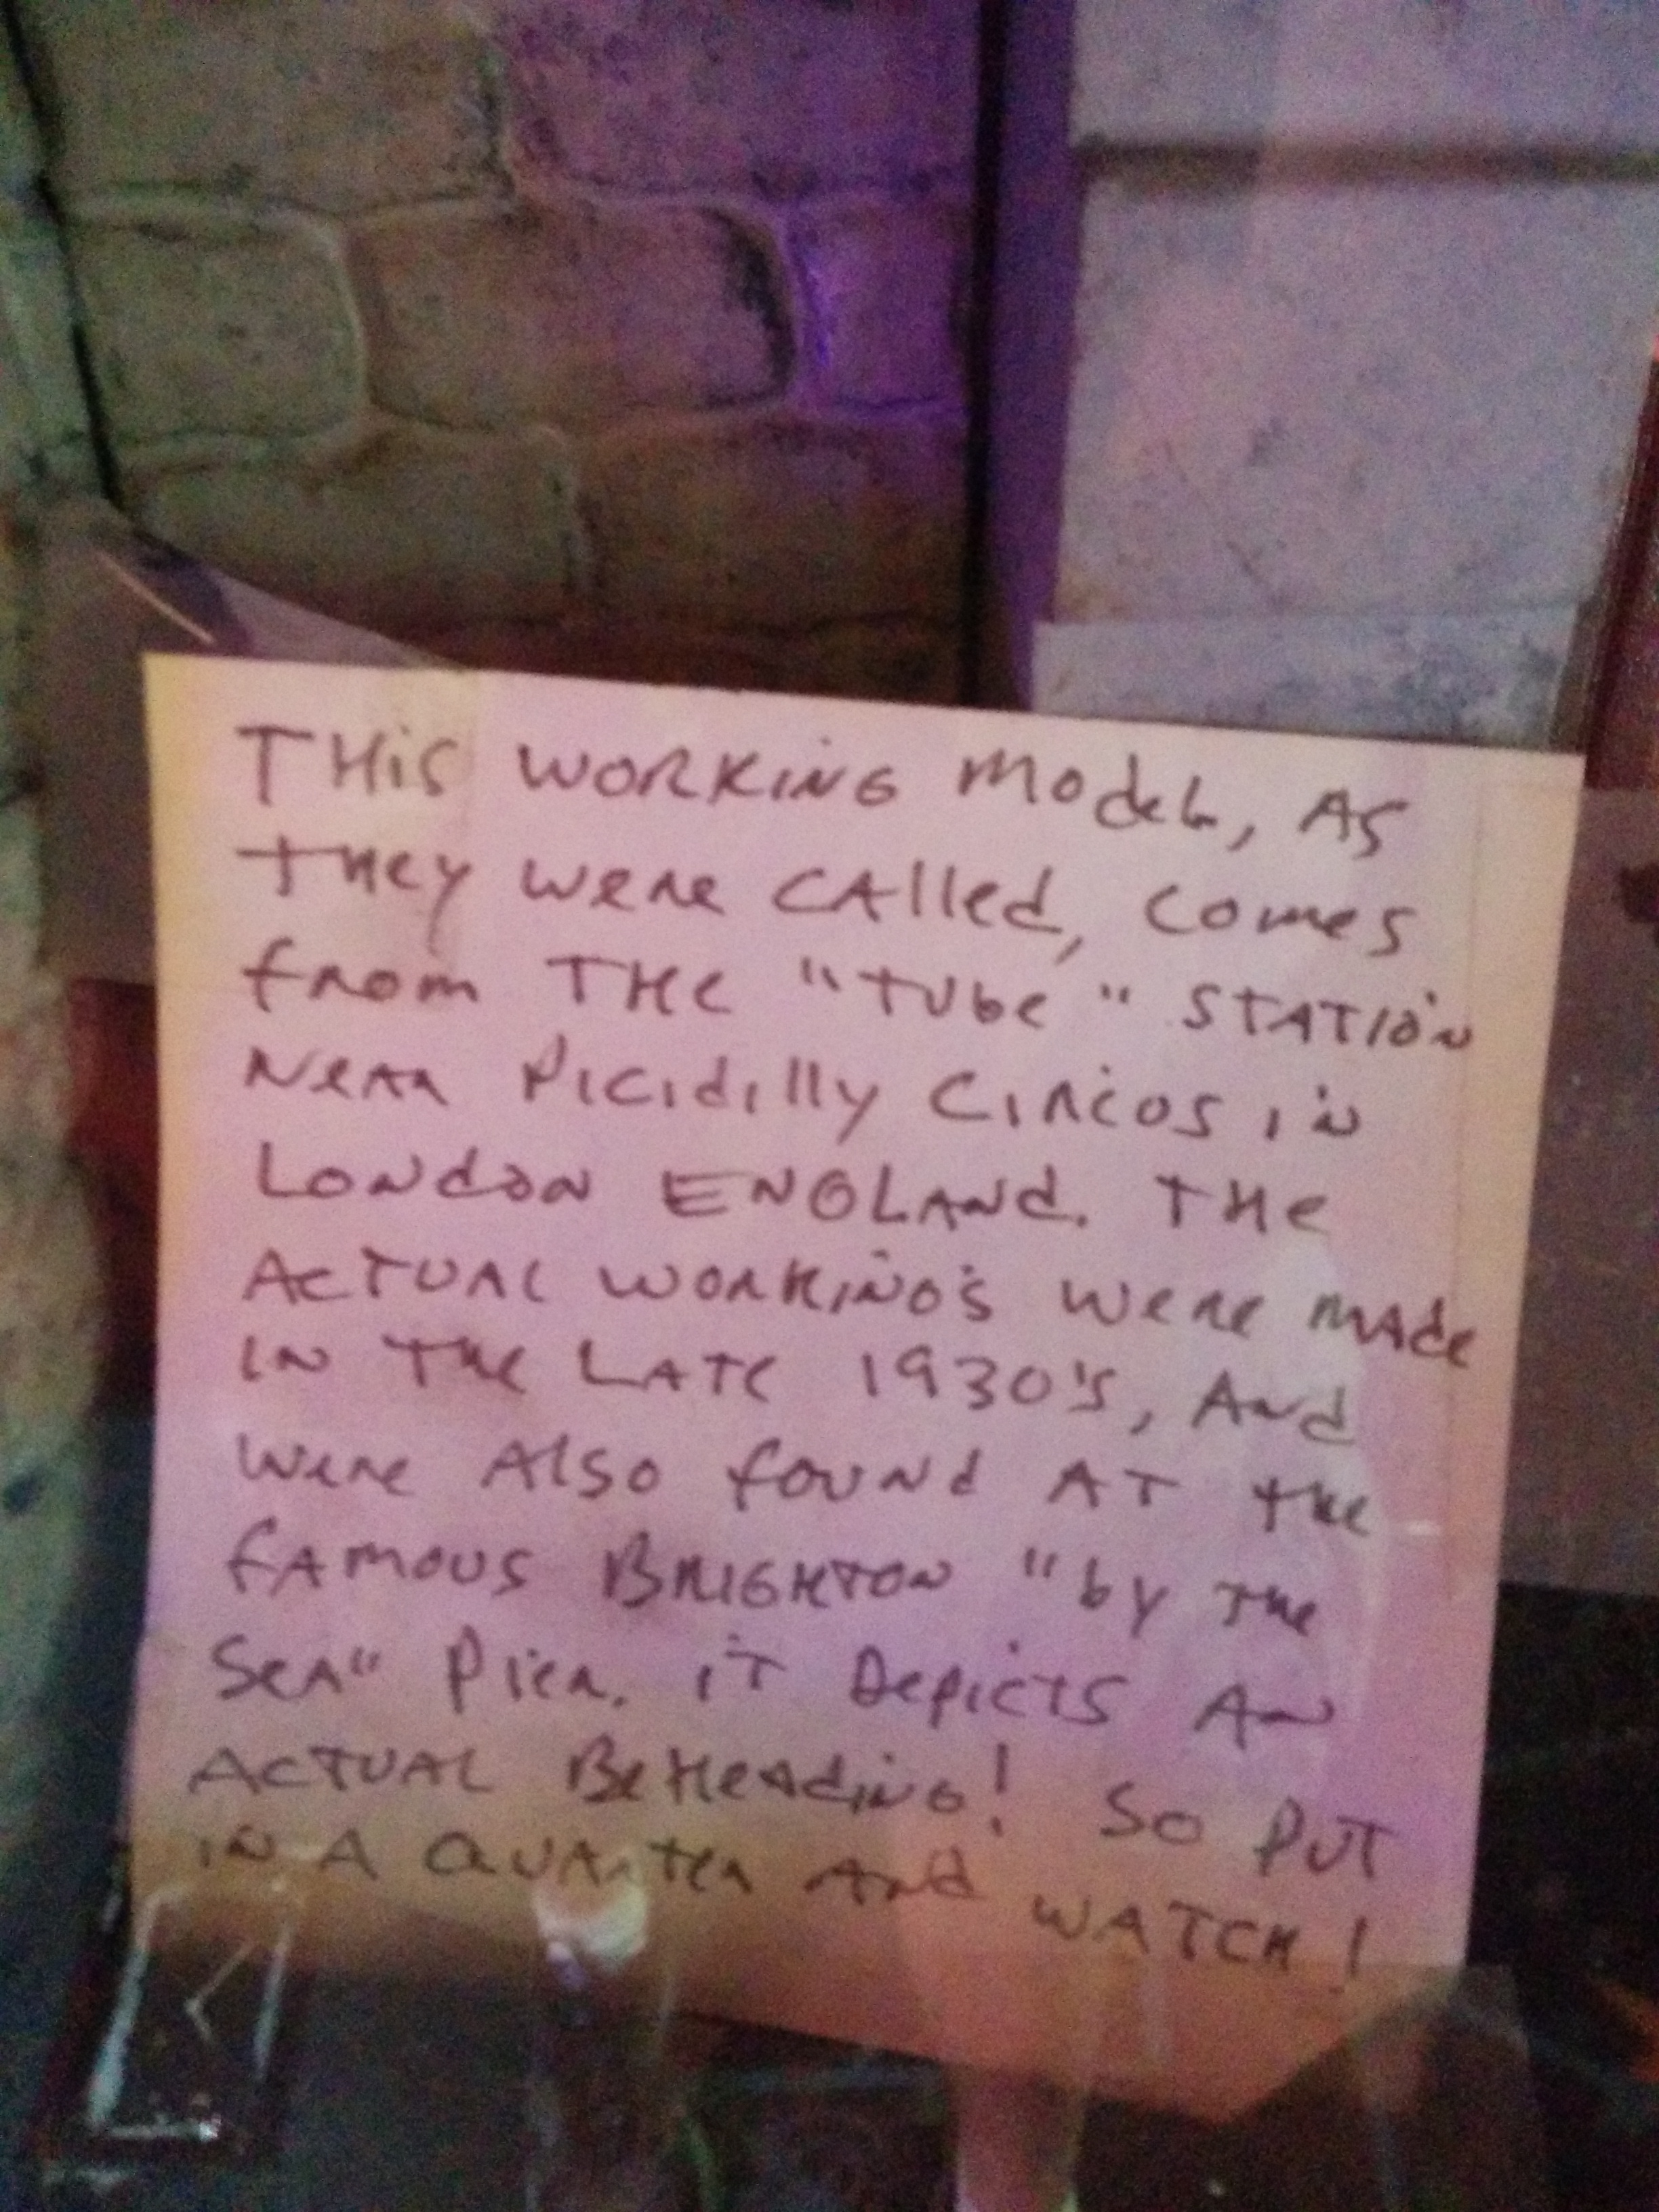 THiS WORKiNG MOdeL, AS
they were CAlled, comes
from THE "TUbe" STATION
Near Picidilly Circos iN
LONdON ENGLANd. THe
ACTUAL WORKiNG'S were MADe
IN THE LATE 1930'S, ANd
were Also foUNd AT the
fAMOUS BRIGHTON "by THe
SeA" Pier. iT DepicTS AN
ACTUAL BeHeAdiNG! SO PUT
iN A QUArter ANd WATCH!